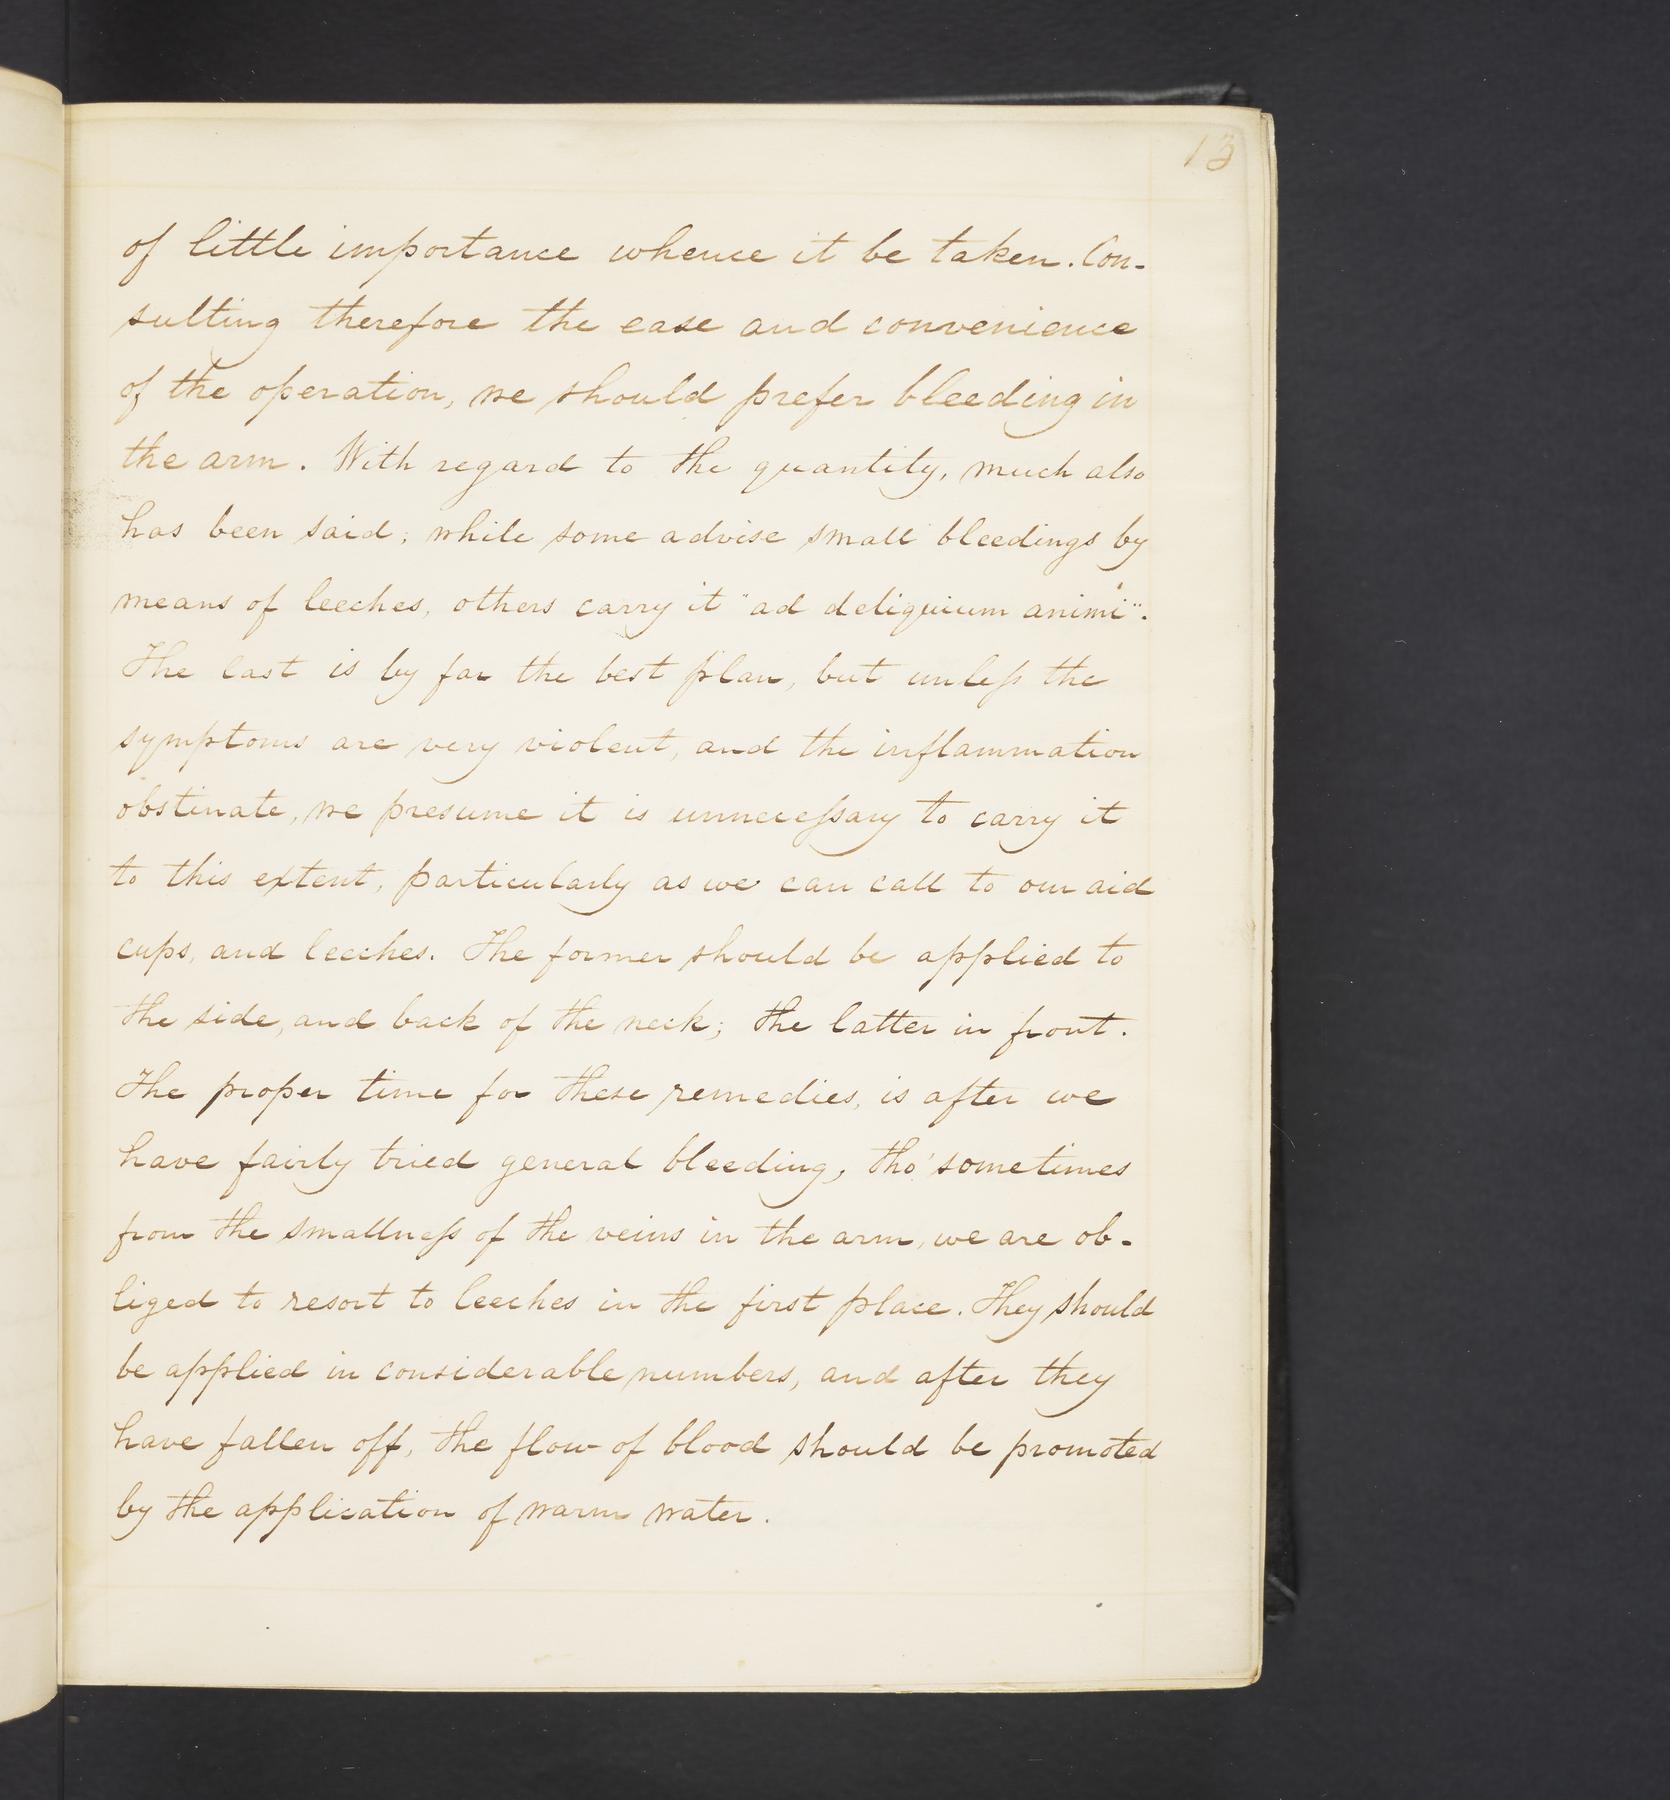 13
of little importance whence it be taken. Con-
sulting therefore the ease and convenience
of the operation, we should prefer bleeding in
the arm. With regard to the quantity, much also
has been said; while some advise small bleedings by
means of leeches, others carry it "ad deliquium animi".
The last is by far the best plan, but unleſs the
symptoms are very violent, and the inflammation
obstinate, we presume it is unneceſsary to carry it
to this extent, particularly as we can call to our aid
cups, and leeches. The former should be applied to
the side, and back of the neck; the latter in front.
The proper time for these remedies, is after we
have fairly tried general bleeding, tho' sometimes
from the smallneſs of the veins in the arm, we are ob-
liged to resort to leeches in the first place. They should
be applied in considerable numbers, and after they
have fallen off, the flow of blood should be promoted
by the application of warm water.